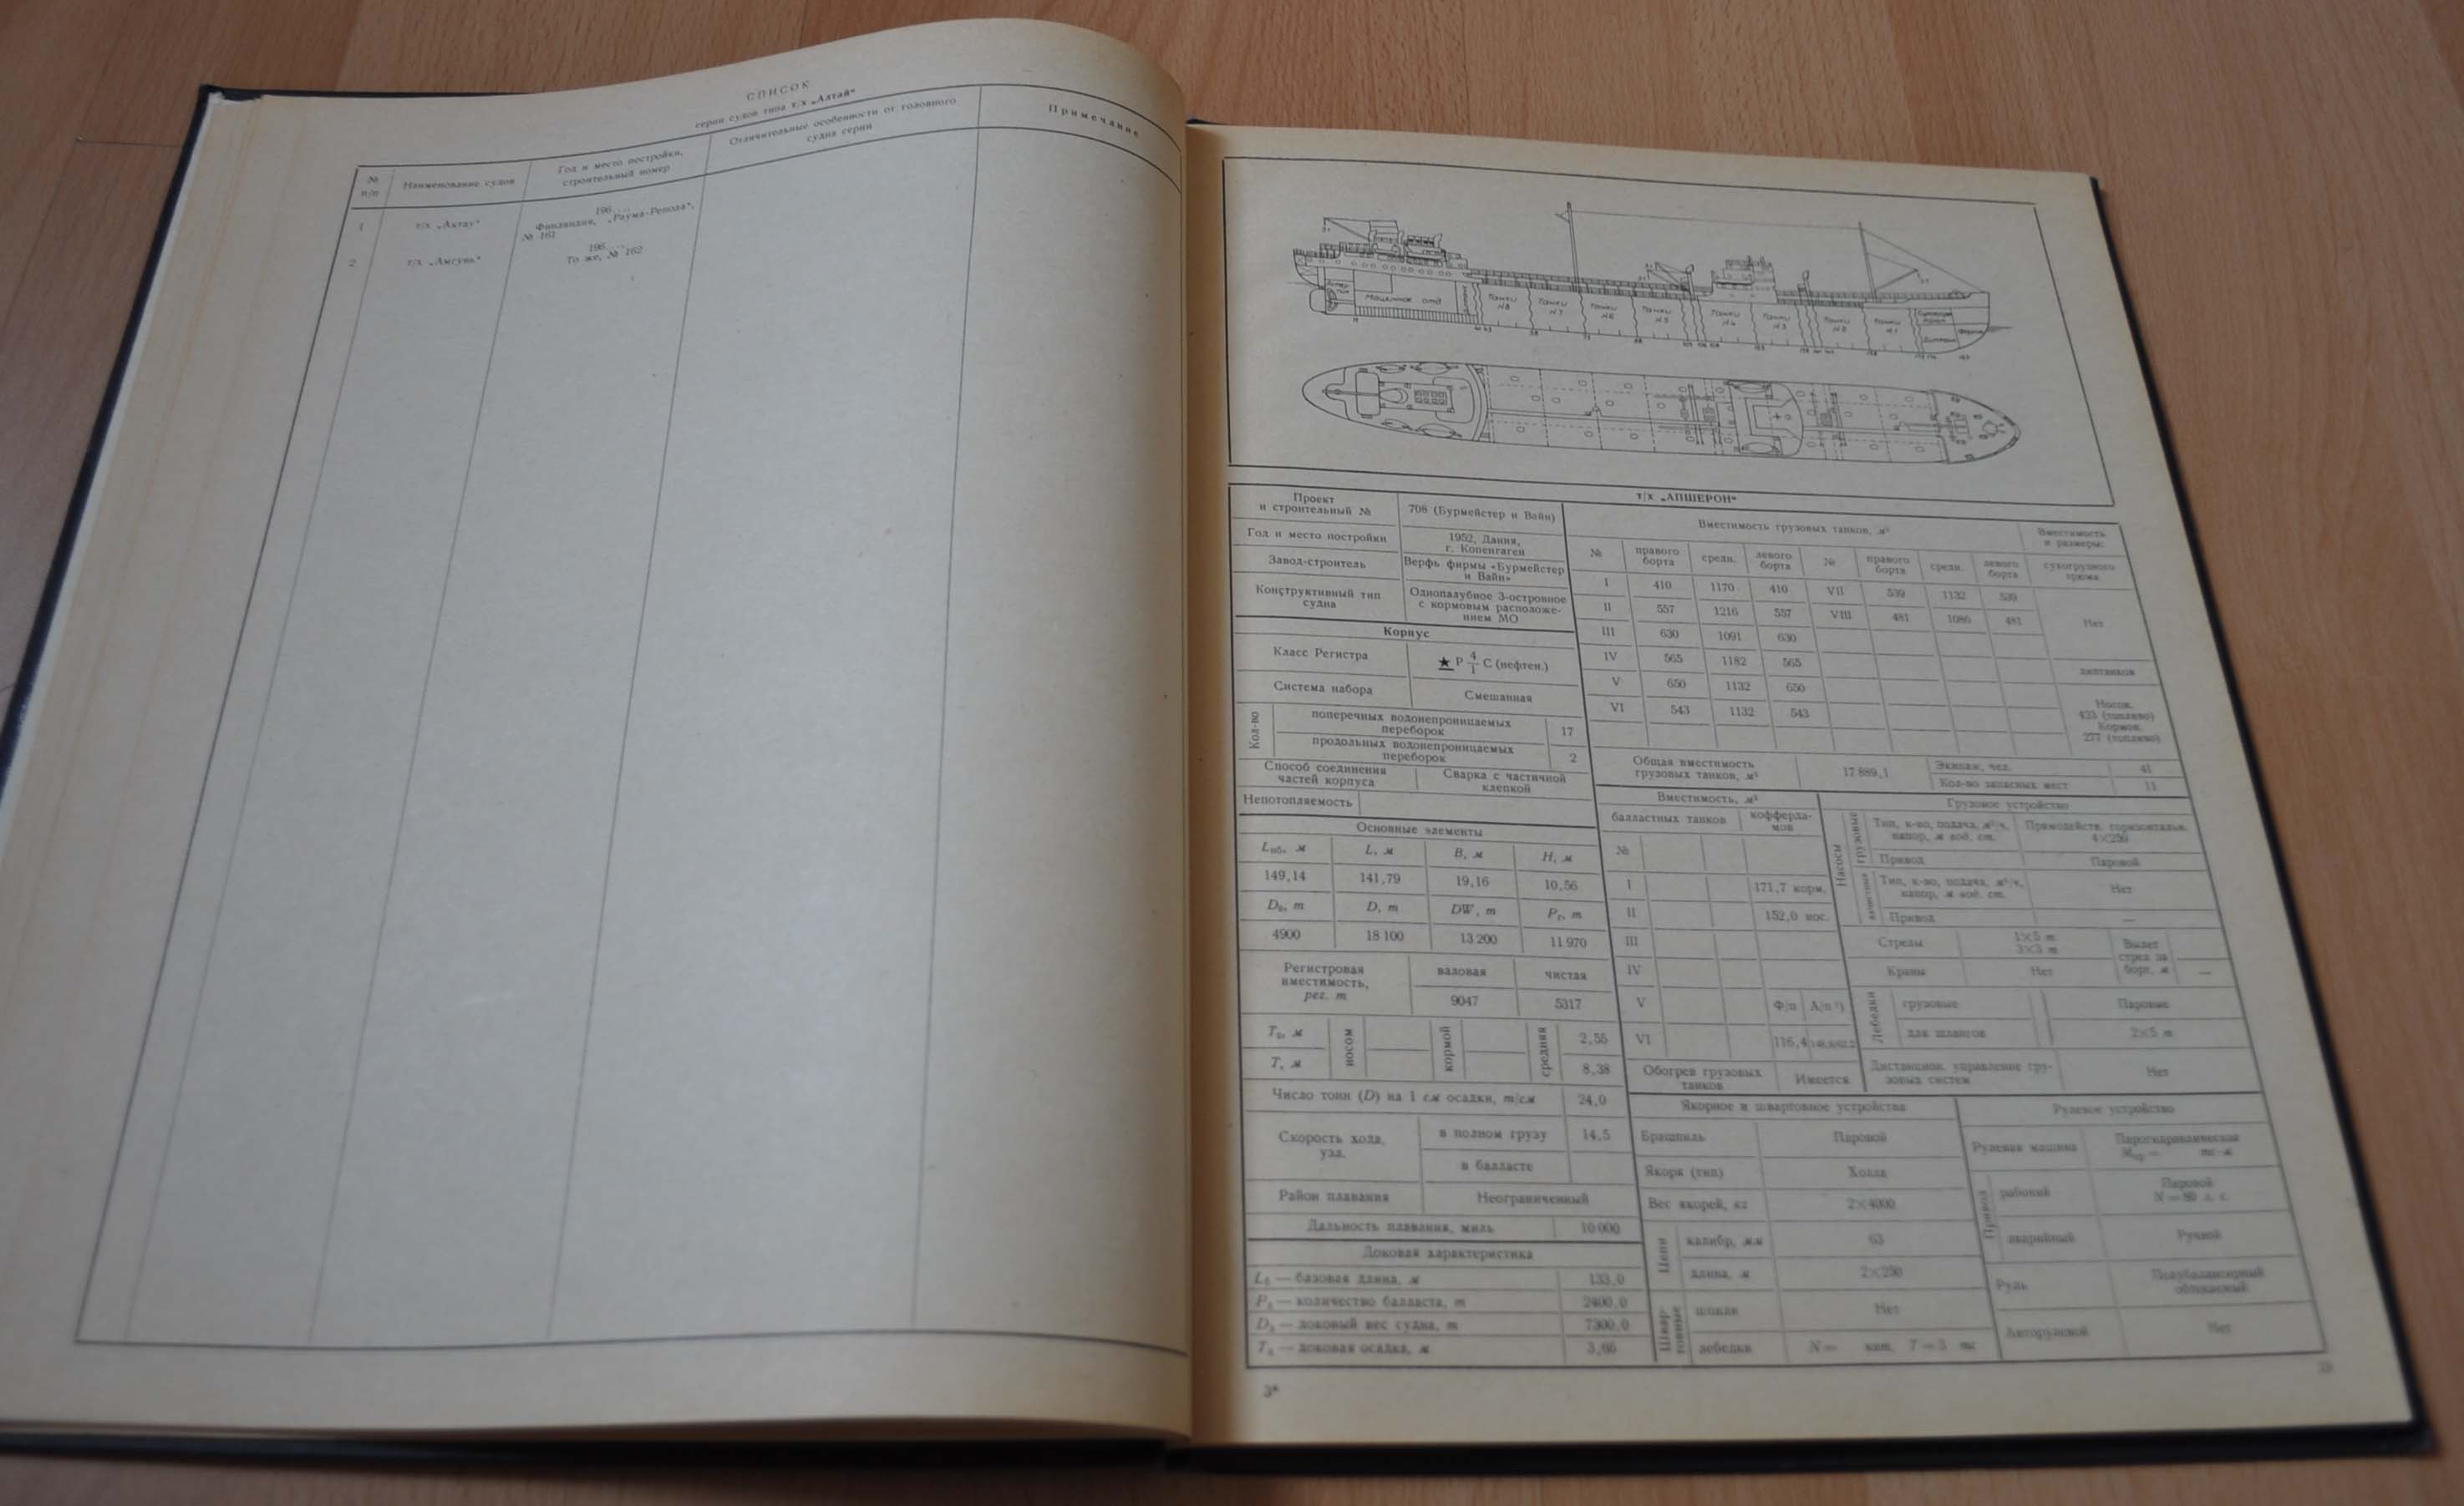 СПИСОК
серии судов типа т/х „Алтай“
№ п/п
Наименование судов
Год и место постройки, строительный номер
Отличительные особенности от головного судна серии
Примечание
1 т/х „Актау“ 196... Финляндия, „Раума-Репола“, № 161
2 т/х „Амгунь“ 196... То же, № 162
Машинное отд.
Танки №8
Танки №7
Танки №6
Танки №5
Танки №4
Танки №3
Танки №2
Танки №1
т/х „АПШЕРОН“
Проект и строительный № 708 (Бурмейстер и Вайн)
Год и место постройки 1952, Дания, г. Копенгаген
Завод-строитель Верфь фирмы «Бурмейстер и Вайн»
Конструктивный тип судна Однопалубное 3-островное с кормовым расположением МО
Корпус
Класс Регистра ★ Р 4/1 С (нефтен.)
Система набора Смешанная
Кол-во
поперечных водонепроницаемых переборок 17
продольных водонепроницаемых переборок 2
Способ соединения частей корпуса Сварка с частичной клепкой
Непотопляемость
Основные элементы
Lнб, м L, м B, м H, м
149,14 141,79 19,16 10,56
D₀, т D, т DW, т Pг, т
4900 18 100 13 200 11 970
Регистровая вместимость, рег. т валовая чистая
9047 5317
T₀, м носом кормой средняя 2,55
T, м 8,38
Число тонн (D) на 1 см осадки, т/см 24,0
Скорость хода, узл. в полном грузу 14,5
в балласте
Район плавания Неограниченный
Дальность плавания, миль 10 000
Доковая характеристика
L₅ — базовая длина, м 133,0
— количество балласта, т 2400,0
— доковый вес судна, т 7300,0
— доковая осадка, м 3,66
Вместимость грузовых танков, м³
№ правого борта средн. левого борта № правого борта средн. левого борта
I 410 1170 410 VII 539 1132 539
II 557 1216 557 VIII 481 1086 481
III 630 1091 630
IV 565 1182 565
V 650 1132 650
VI 543 1132 543
Вместимость и размеры:
сухогрузного трюма
Нет
диптанков
Носов. 423 (топливо)
Кормов. 277 (топливо)
Общая вместимость грузовых танков, м³ 17 889,1
Экипаж, чел. 41
Кол-во запасных мест 11
Вместимость, м³
балластных танков коффердамов
№
I 171,7 корм.
II 152,0 нос.
III
IV
V Ф/п А/п
VI 116,4
Обогрев грузовых танков Имеется
Грузовое устройство
Насосы
грузовые
Тип, к-во, подача, м³/ч, напор, м вод. ст. Прямодейств. горизонтальн. 4×250
Привод Паровой
зачистные
Тип, к-во, подача, м³/ч, напор, м вод. ст. Нет
Привод —
Стрелы 1×5 т 3×3 т
Вылет стрел за борт, м —
Краны Нет
Лебедки
грузовые Паровые
для шлангов 2×5 т
Дистанцион. управление грузовых систем Нет
Якорное и швартовное устройства
Брашпиль Паровой
Якоря (тип) Холла
Вес якорей, кг 2×4000
Цепи
калибр, мм 63
длина, м 2×250
Швартовные
шпили Нет
лебедки N = квт, T = 3 тс
Рулевое устройство
Рулевая машина Парогидравлическая
Привод
рабочий Паровой N = 80 л. с.
аварийный Ручной
Руль Полубалансирный обтекаемый
Авторулевой Нет
3*